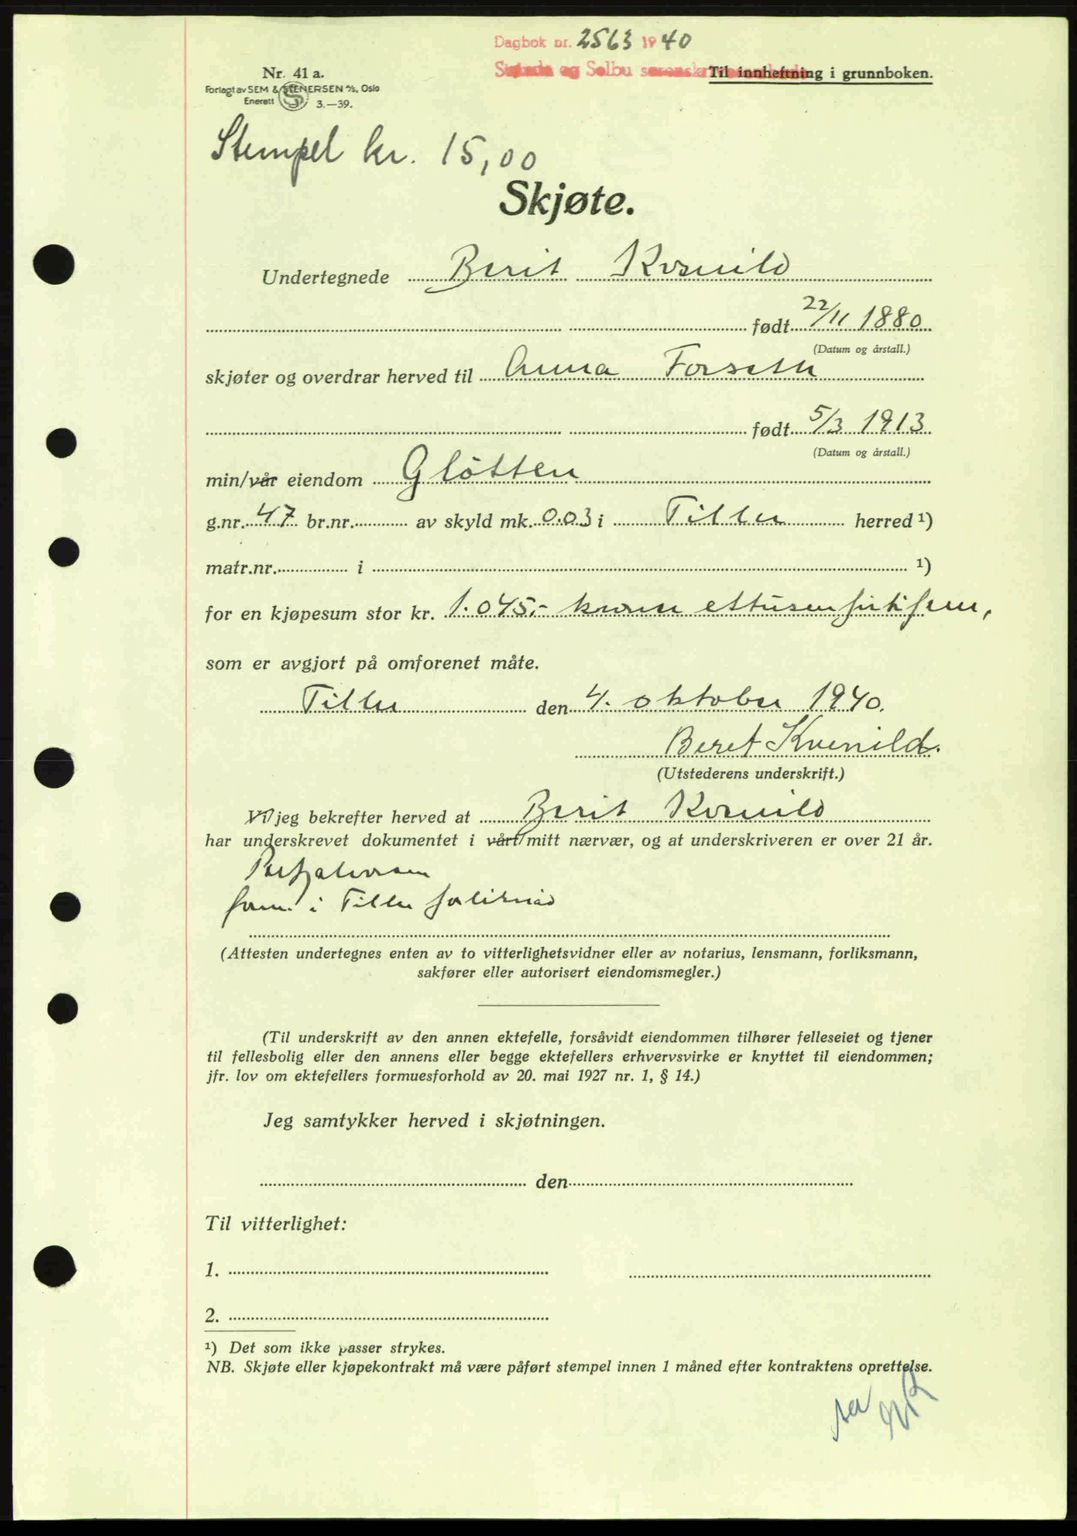 Dagbok nr. 2563 1940
Strinda og Selbu sorenskriverembede
Til innheftning i grunnboken.
Nr. 41 a.
Forlagt av SEM & STENERSEN A/S, Oslo
Enerett S 3.—39.
Stempel kr. 15,00
Skjøte.
Undertegnede Berit Kvenild
født 22/11 1880
(Datum og årstall.)
skjøter og overdrar herved til Anna Forseth
født 5/3 1913
(Datum og årstall.)
min/vår eiendom Gløtten
g.nr. 47 br.nr. av skyld mk. 0.03 i Tiller herred ¹)
matr.nr. i ¹)
for en kjøpesum stor kr. 1.045,- kroner ettusenførtifem,
som er avgjort på omforenet måte.
Tiller den 4. oktober 1940.
Beret Kvenild.
(Utstederens underskrift.)
Vi/jeg bekrefter herved at Berit Kvenild
har underskrevet dokumentet i vårt/mitt nærvær, og at underskriveren er over 21 år.
form. i Tiller forliksråd
(Attesten undertegnes enten av to vitterlighetsvidner eller av notarius, lensmann, forliksmann,
sakfører eller autorisert eiendomsmegler.)
(Til underskrift av den annen ektefelle, forsåvidt eiendommen tilhører felleseiet og tjener
til fellesbolig eller den annens eller begge ektefellers erhvervsvirke er knyttet til eiendommen;
jfr. lov om ektefellers formuesforhold av 20. mai 1927 nr. 1, § 14.)
Jeg samtykker herved i skjøtningen.
den
Til vitterlighet:
1.
2.
¹) Det som ikke passer strykes.
NB. Skjøte eller kjøpekontrakt må være påført stempel innen 1 måned efter kontraktens oprettelse.